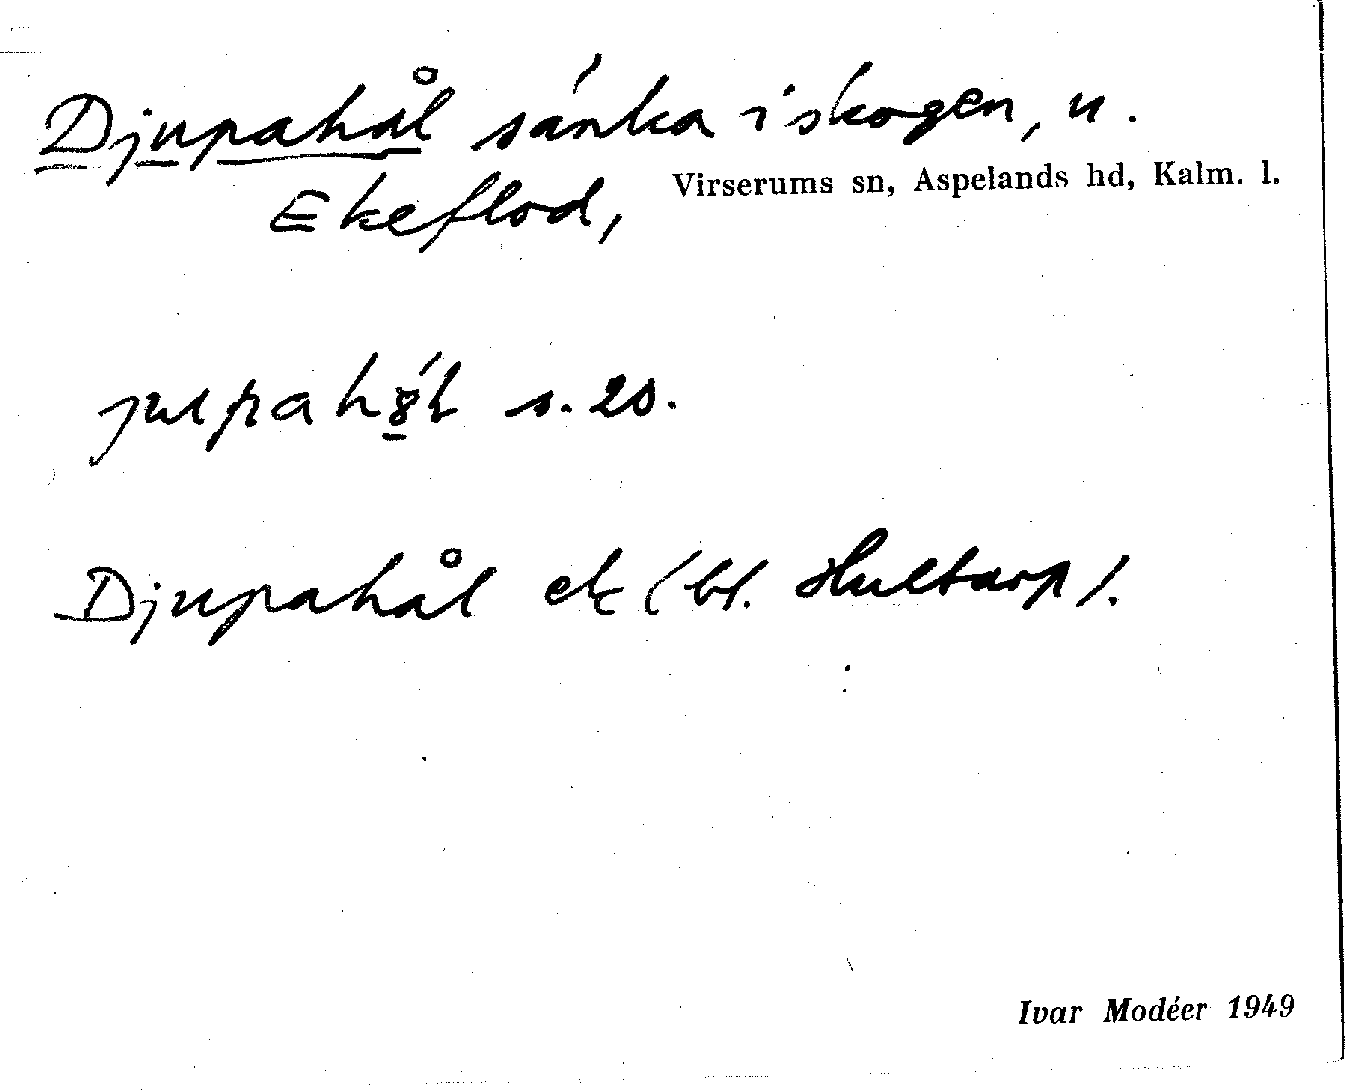 Djupahål sänka i skogen, u.
Ekeflod, Virserums sn, Aspelands hd, Kalm. l.
s. 20.
Djupahål ek (bl. Hultarp).
Ivar Modéer 1949